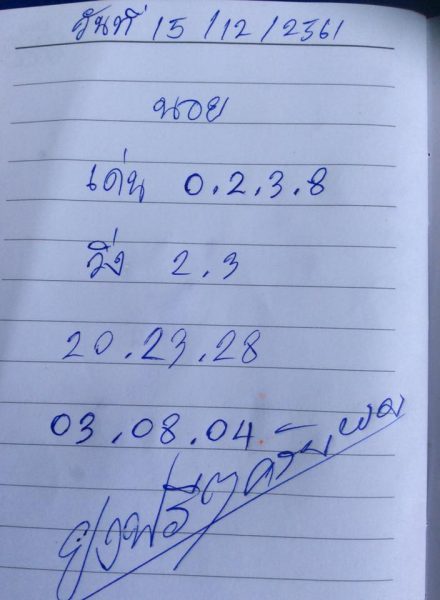 วันที่ 15/12/2561
นอย
เด่น 0.2.3.8
วิ่ง 2.3
20.23.28
03.08.04.-